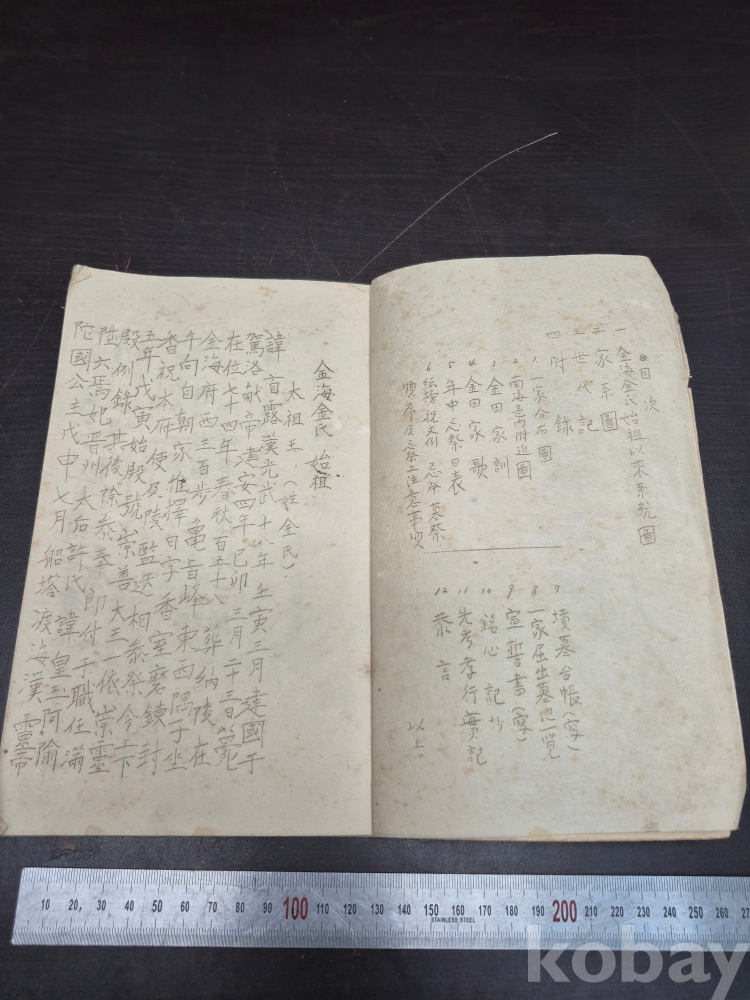 ◎目次
一 金海金氏始祖以来系統圖
二 家系圖
三 世代記
四 附錄
1 一家分布圖
2 南海邑內附近圖
3 金田家訓
4 金田家歌
5 年中忌祭日表
6 紙榜祝文例 忌祭 墓祭
順序及忌祭上注意事項
7 墳墓台帳(寫)
8 一家屈出墓地一覽
9 宣誓書(寫)
10 銘心記抄
11 先考孝行實記
12 恭言
以上
金海金氏 始祖
太祖王(姓金氏)
諱首露漢光武十八年壬寅三月建國于
駕洛獻帝建安四年己卯三月二十三日薨
在位七十四年春秋百五十八葬納陵在
金海府西三百步龜旨峰東西隅子坐
午向自朝家推擇日字香室磨鍊封
香祝本府使及陵監迭相泰祭今上
五年戊寅始殿號崇善大三一依崇靈
殿例錄其後除泰奉郎付于職任滿
陞六焉妃晋州太后許氏諱皇玉阿踰
陀國公主戊申七月船塔渡海漢靈帝
10 20 30 40 50 60 70 80 90 100 110 120 130 140 150 160 170 180 190 200 210 220 230 240 250 260
STAINLESS STEEL
kobay